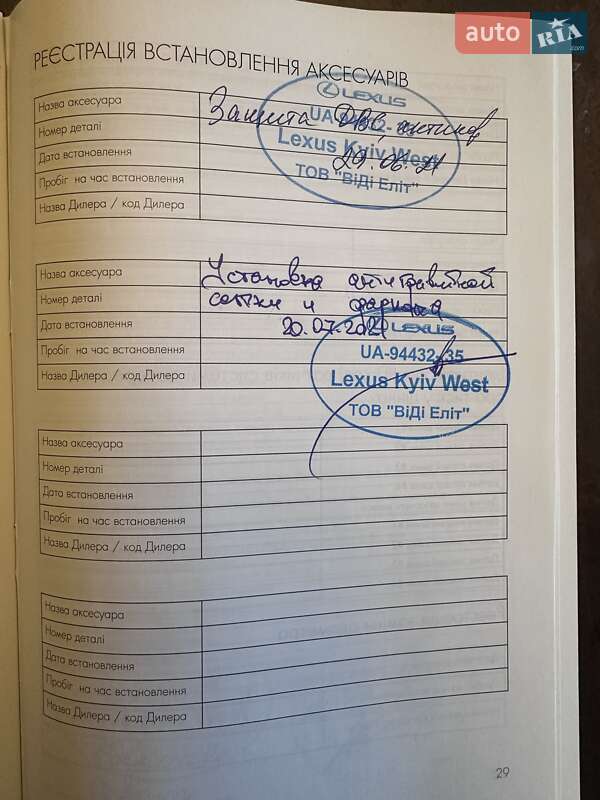 auto RIA.com
РЕЄСТРАЦІЯ ВСТАНОВЛЕННЯ АКСЕСУАРІВ
Назва аксесуара
Защита ДВС,
Номер деталі
Дата встановлення
29.06.21
Пробіг на час встановлення
Назва Дилера / код Дилера
LEXUS
UA-
Lexus Kyiv West
ТОВ "ВіДі Еліт"
Назва аксесуара
Установка антигравийной
Номер деталі
сетки и фаркопа
Дата встановлення
20.07.2021
Пробіг на час встановлення
Назва Дилера / код Дилера
LEXUS
UA-94432-35
Lexus Kyiv West
ТОВ "ВіДі Еліт"
Назва аксесуара
Номер деталі
Дата встановлення
Пробіг на час встановлення
Назва Дилера / код Дилера
Назва аксесуара
Номер деталі
Дата встановлення
Пробіг на час встановлення
Назва Дилера / код Дилера
29